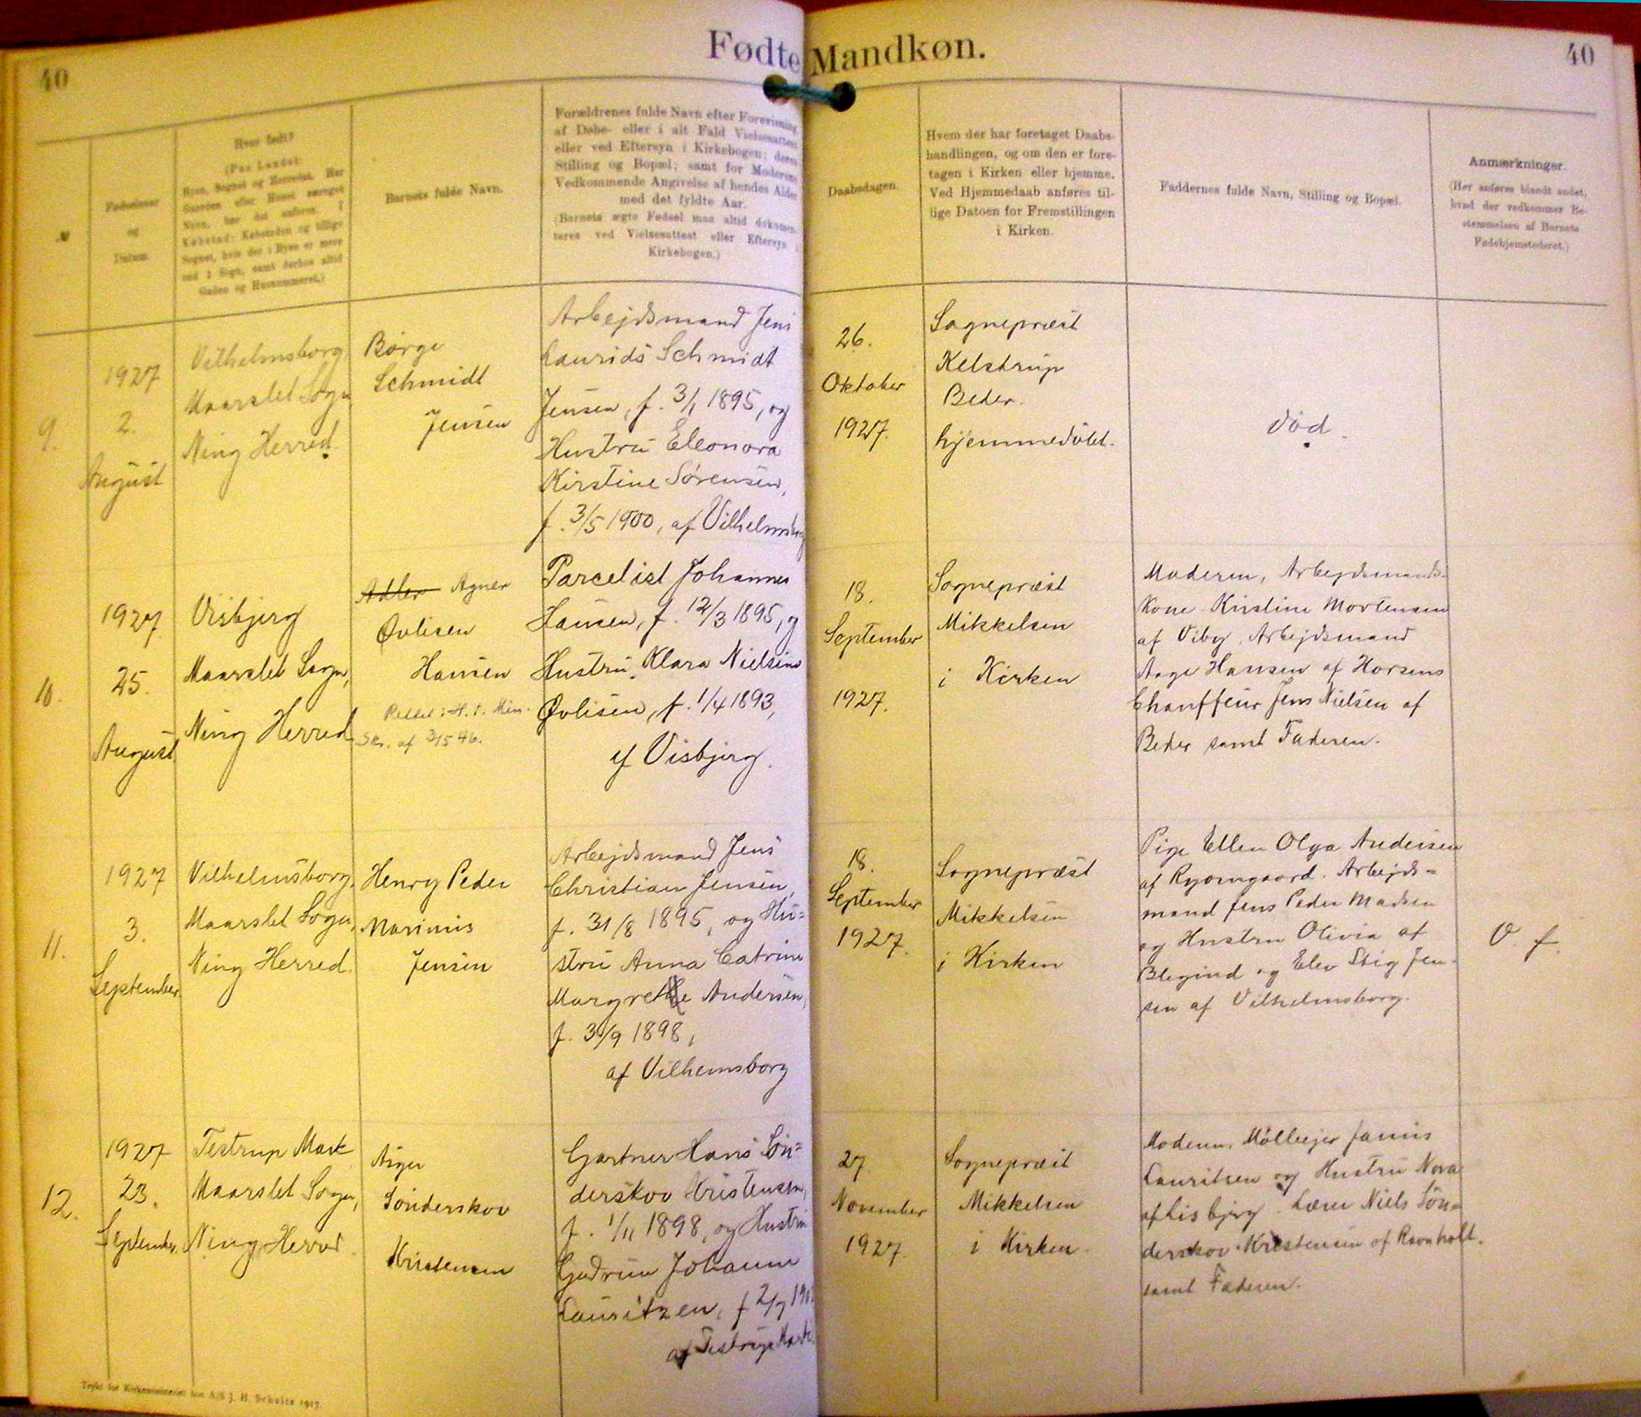 40
Fødte Mandkøn.
40
Fødselsaar
og
Datum.
Hvor født?
(Paa Landet:
Byen, Sognet og Herredet. Har
Gaarden eller Huset særeget
Navn, bør det anføres. I
Købstad: Købstaden og tillige
Sognet, hvis der i Byen er mere
end 1 Sogn, samt derhos altid
Gaden og Husnummeret.)
Barnets fulde Navn.
Forældrenes fulde Navn efter Forevisning
af Døbe- eller i alt Fald Vielsesattest
eller ved Eftersyn i Kirkebogen; deres
Stilling og Bopæl; samt for Moderens
Vedkommende Angivelse af hendes Alder
med det fyldte Aar.
(Barnets ægte Fødsel maa altid dokumen-
teres ved Vielsesattest eller Eftersyn i
Kirkebogen.)
Daabsdagen.
Hvem der har foretaget Daabs-
handlingen, og om den er fore-
tagen i Kirken eller hjemme.
Ved Hjemmedaab anføres til-
lige Datoen for Fremstillingen
i Kirken.
Faddernes fulde Navn, Stilling og Bopæl.
Anmærkninger.
(Her anføres blandt andet,
hvad der vedkommer Be-
stemmelsen af Barnets
Fødehjemstederet.)
9.
1927
2.
August
Vilhelmsborg
Maarslet Sogn
Ning Herred.
Børge
Schmidt
Jensen
Arbejdsmand Jens
Laurids Schmidt
Jensen, f. 3/1 1895, og
Hustru Eleonora
Kirstine Sørensen,
f. 3/5 1900, af Vilhelmsborg
26.
Oktober
1927.
Sognepræst
Kelstrup
Beder.
hjemmedøbt.
død.
10.
1927
25.
August
Visbjerg
Maarslet Sogn,
Ning Herred
Adler Agner
Qvlisen
Hansen
Rettet: H. t. Min.
Skr. af 3/5 46.
Parcelist Johannes
Hansen, f. 12/3 1895, og
Hustru Klara Nielsine
Qvlisen, f. 1/4 1893,
af Visbjerg.
18.
September
1927.
Sognepræst
Mikkelsen
i Kirken
Moderen, Arbejdsmands-
kone Kirstine Mortensen
af Viby. Arbejdsmand
Aage Hansen af Horsens
Chauffeur Jens Nielsen af
Beder samt Faderen.
11.
1927
3.
September
Vilhelmsborg,
Maarslet Sogn,
Ning Herred.
Henry Peder
Marinus
Jensen
Arbejdsmand Jens
Christian Jensen,
f. 31/8 1895, og Hu=
stru Anna Catrine
Margrethe Andersen,
f. 30/9 1898,
af Vilhemsborg
18.
September
1927.
Sognepræst
Mikkelsen
i Kirken
Pige Ellen Olga Andersen
af Ryomgaard. Arbejds=
mand Jens Peder Madsen
og Hustru Olivia af
Blegind og Elev Stig Jen-
sen af Vilhelmsborg.
V. f.
12.
1927
23.
September.
Testrup Mark
Maarslet Sogn,
Ning Herred.
Asger
Sønderskov
Kristensen
Gartner Hans Søn=
derskov Kristensen,
f. 1/11 1898, og Hustru
Gudrun Johanne
Lauritzen, f 2/7
af Testrup Mark.
27.
November
1927.
Sognepræst
Mikkelsen
i Kirken.
Moderen, Møllejer Jannis
Lauritsen og Hustru Nora
af Lisbjerg. Lærer Niels Søn=
derskov Kristensen af
samt Faderen.
Trykt for Kirkeministeriet hos A/S J. H. Schultz 1917.